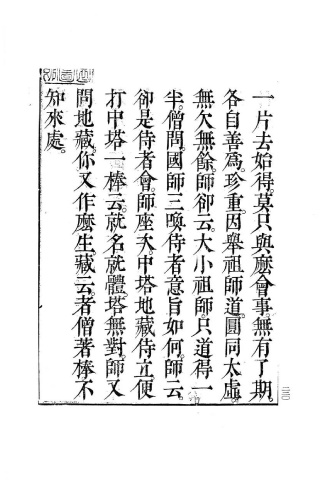 一片去始得。莫只與麽會。事無有了期。
各自善爲。珍重。因舉祖師道。圓同太虛。
無欠無餘。師卻云。大小祖師。只道得一
半。僧問。國師三喚侍者。意旨如何。師云。
卻是侍者會。師座次。中塔地藏侍立。便
打中塔一棒云。就名就體。塔無對。師又
問地藏。你又作麽生。藏云。者僧著棒不
知來處。
二三〇